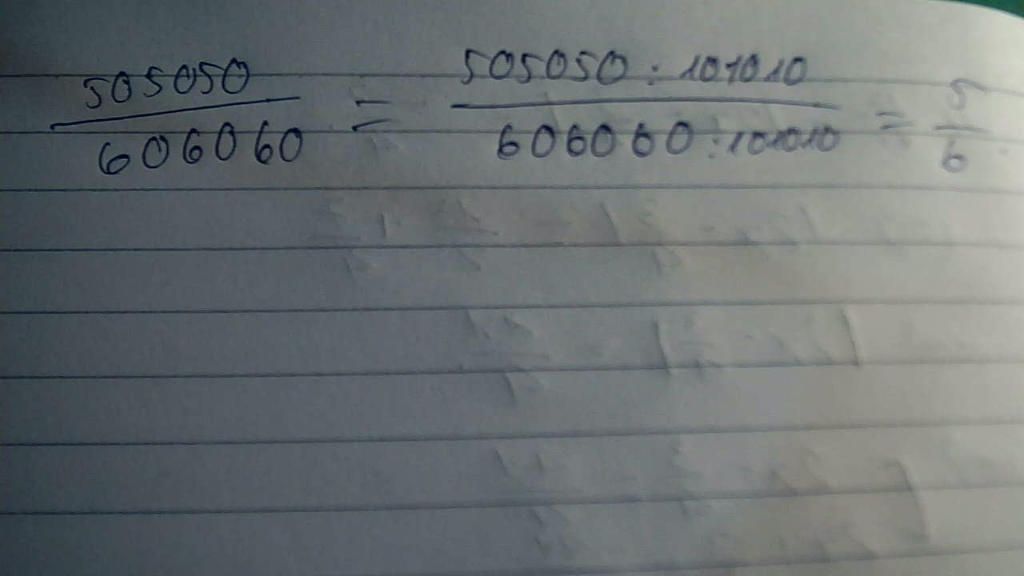 505050 / 606060 = 505050 : 101010 / 606060 : 101010 = 5 / 6